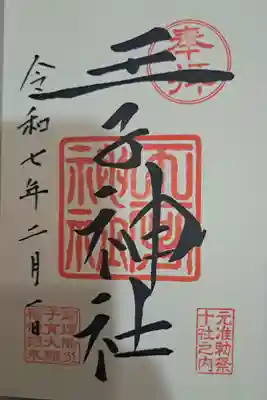 奉拝
王子神社
王子神社
令和七年二月一日
元准勅祭
十社之内